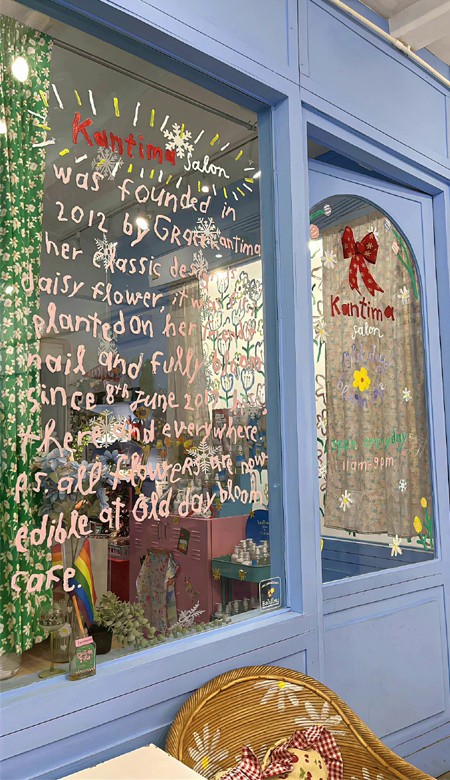 Kantima salon
was founded in
2012 by Grace Kantima
her classic design is
daisy flower, it was 1st
planted on her friend's
nail and fully bloom
since 8th June 2019
there and everywhere
As all flowers are now
edible at Old day bloom
cafe.
Kantima
salon
Old day
bloom
11am-9pm